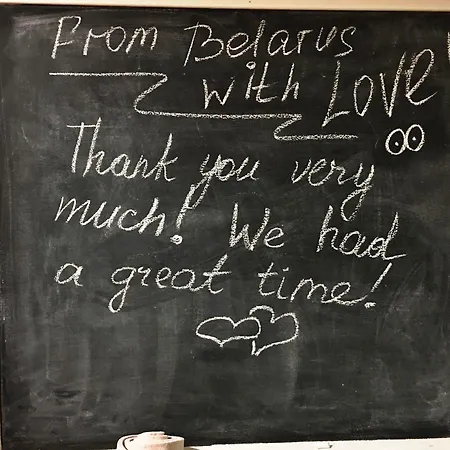 From Belarus
with LOVE
Thank you very
much! We had
a great time!